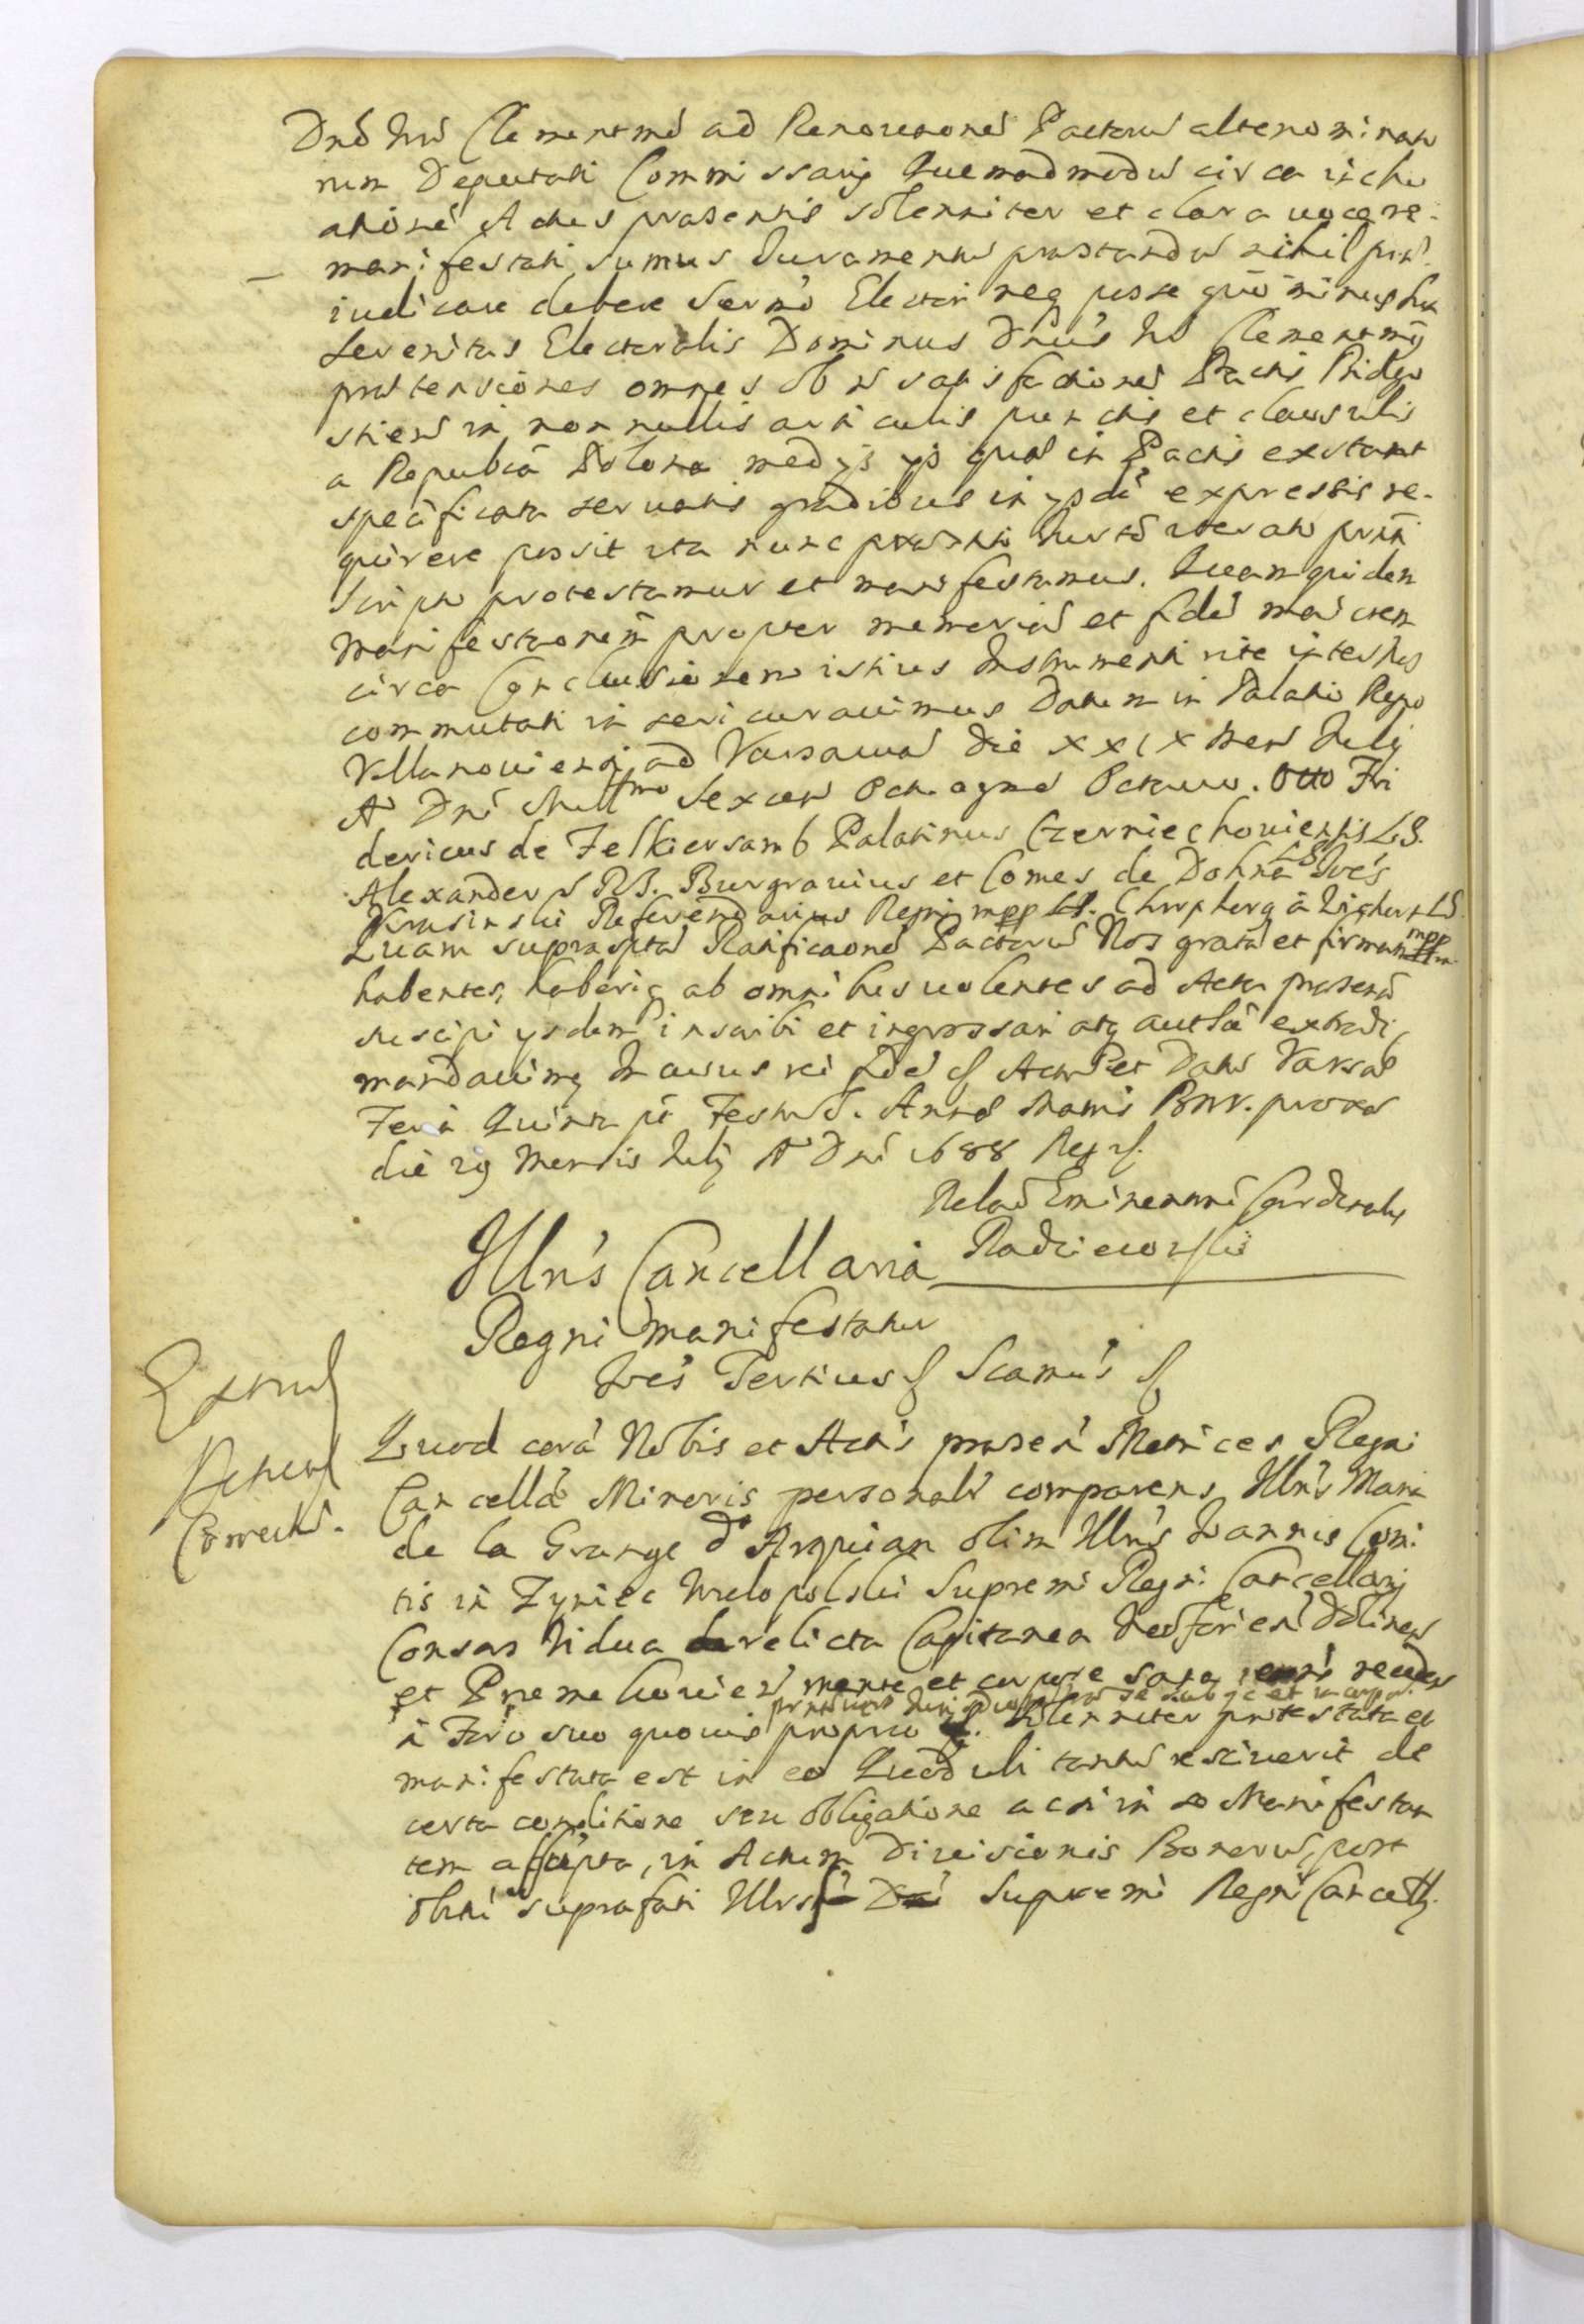 Dnō Nrō Clementmō ad Renovationē Pactorū altenominato
rum Deputati Commissarij Quemadmodū circa incho
ationē Actus præsentis solenniter et clara voce re-
manifestati sumus Juramentū præstandū nihil præ
iudicare debere Sermō Electori neq posse quō minus Sua
Serenitas Electoralis Dominus Dnūs Nr Clementmg
prætensiones omnes ob satisfactionē Pactis Bidgo
stien in nonnullis articulis punctis et clausulis
a Republcā Polona medijs ijs quæ in Pactis exstant
specificata servatis gradibus in ijsdē expressis re-
quirere possit ita nunc præsenti iterato
Scripto protestamur et manifestamus. Quam quidem
manifestaonem propter memoriā et fidē
circa Conclusionem istius Instrumenti rite
commutati in seri curavimus Datum in Palatio Regio
Villanoviensi ad Varsaviā Die XXIX Men July
Aō Dni Millmo Sexcen Octuagmō Octavo. Otto Fri
dericus de Felkiersamb Palatinus Czerniechoviensis LS.
Alexander S R I. Burgravius et Comes de Dohna LS Joēs
Krasinski Referendarius Regni mpp LS. LS.
Quam suprascptā Ratificaonē Pactorū Nos gratā et firmam mpp
habentes, haberiq ab omnibus volentes ad Acta præsentā
suscipi ysdem inscribi et ingrossari atq autthē extradi
mandavimg In cuius rei fidē Act et Datū Varsae
Feria Quinta pt Festū S. Annæ Matris BMV. proxā
die 29 Mensis July Aō Dni 1688 Reg
Relaō Eminentmi Cardinalis
Radzieiowski
Illris Cancellaria
Regni manifestatur
Joēs Tertius Scamūs
Extrad
Correcta.
Quod corā Nobis et Actis præsen Metrices Regni
Cancellæ Minoris personalr comparens Illris Maria
de la Grange d'Arquian olim Illris Joannis Comi
tis in Zyniec Wielopolski Supremi Regni Cancellarij
Consors Vidua derelicta Capitanea Neoforien Dolinen
et mente et corpore sana recedens
à Foro suo quovis proprio solenniter protestata et
manifestata est in eo Quod ubi tantū resciverit de
certa conditione seu obligatione acsi in se Manifestan
tem assūpta, in Actum Divisionis Bonorū, post
obitū suprafati Illris Dni Supremi Regni Cancell.